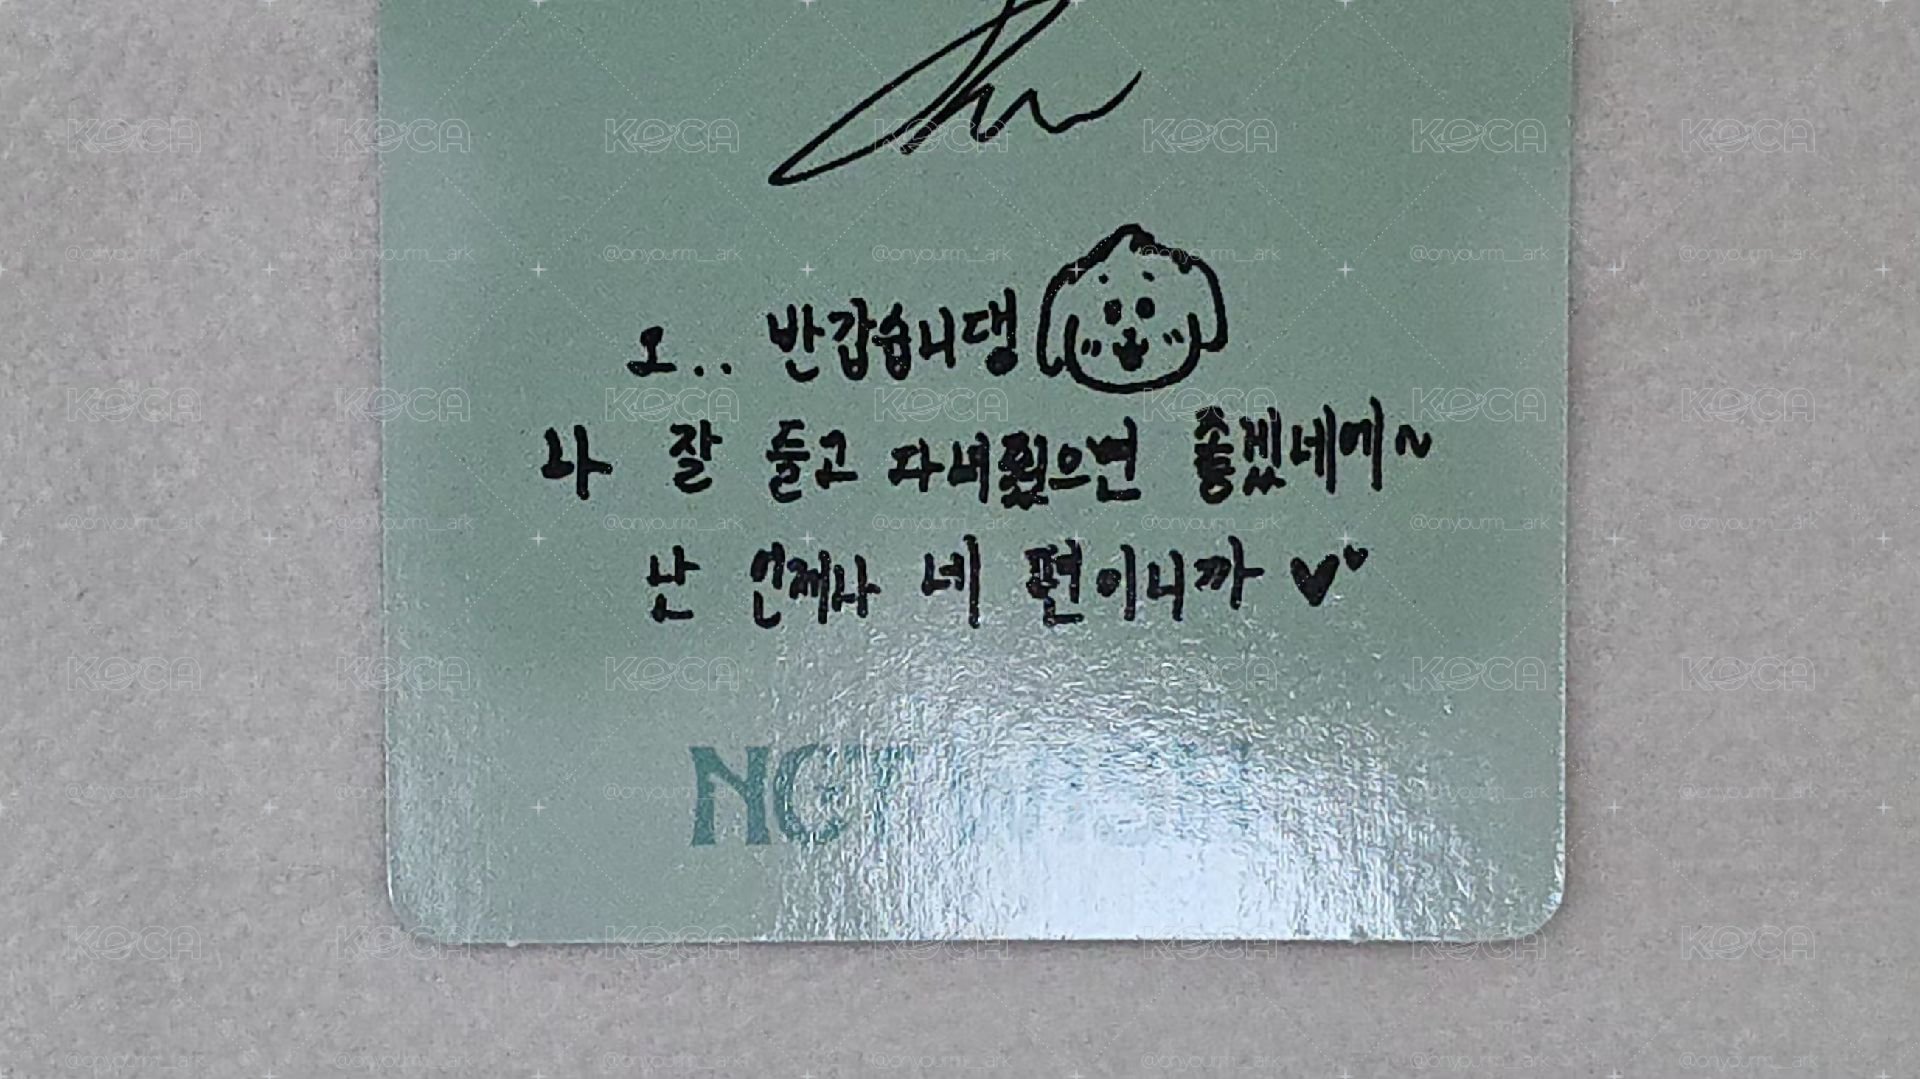 오.. 반갑습니댕
나 잘 들고 다녀줬으면 좋겠네에~
난 언제나 네 편이니까 ♥♥
NCT
KOCA
@onyourm__ark